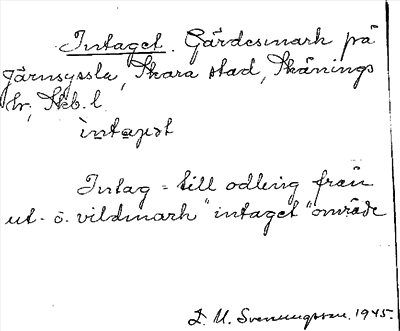 Intaget. Gärdesmark på
Järnsyssla, Skara stad, Skånings
hr, Skb. l.
ìntaget
Intag = till odling från
ut- o. vildmark "intaget" område
I. M. Svennungsson. 1945.